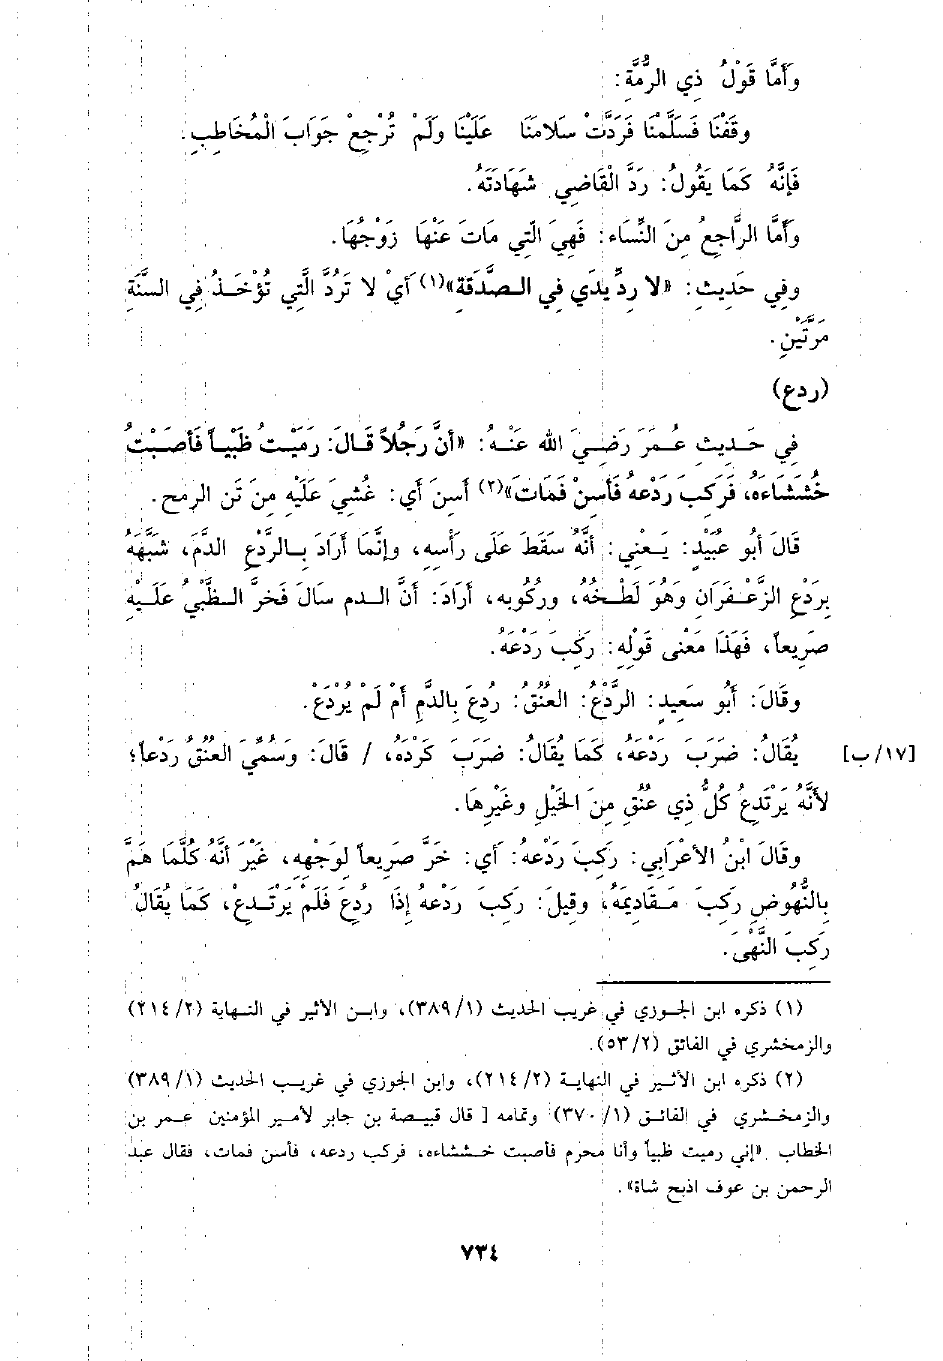 وَأَمَّا قَوْلُ ذِي الرُّمَّةِ:
وقَفْنَا فَسَلَّمْنَا فَرَدَّتْ سَلامَنَا عَلَيْنَا وَلَمْ تُرْجِعْ جَوَابَ الْمُخَاطِبِ.
فَإِنَّهُ كَمَا يَقُولُ: رَدَّ الْقَاضِي شَهَادَتَهُ.
وَأَمَّا الرَّاجِعُ مِنَ النِّسَاءِ: فَهِيَ الَّتِي مَاتَ عَنْهَا زَوْجُهَا.
وفِي حَدِيثِ: «لا رِدِّيدَي فِي الصَّدَقَةِ»(١) أَيْ لا تَرُدَّ الَّتِي تُؤْخَذُ فِي السَّنَةِ
مَرَتَّيْنِ.
(ردع)
فِي حَدِيثِ عُمَرَ رَضِيَ الله عَنْهُ: «أَنَّ رَجُلاً قَالَ: رَمَيْتُ ظَبْياً فَأَصَبْتُ
خُشَشَاءَهُ، فَرَكِبَ رَدْعَهُ فَأَسِنْ فَمَاتَ»(٢) أَسِنَ أَي: غُشِيَ عَلَيْهِ مِنَ تَن الرمح.
قَالَ أَبُو عُبَيْدٍ: يَعْنِي: أَنَّهُ سَقَطَ عَلَى رَأْسِهِ، وإِنَّمَا أَرَادَ بِالرَّدْعِ الدَّمَ، شَبَّهَهُ
بِرَدْعِ الزَّعْفَرَانِ وَهُوَ لَطْخُهُ، ورُكُوبه، أَرَادَ: أَنَّ الدم سَالَ فَخرَّ الظَّبْيُ عَلَيْهِ
صَرِيعاً، فَهَذَا مَعْنى قَوْلِهِ: رَكِبَ رَدْعَهُ.
وقَالَ: أَبُو سَعِيدٍ: الرَّدْعُ: العُنُقُ: رُدِعَ بِالدَّمِ أَمْ لَمْ يُرْدَعْ.
[١٧/ب] يُقَالُ: ضَرَبَ رَدْعَهُ، كَمَا يُقَالُ: ضَرَبَ كَرْدَهُ، / قَالَ: وَسُمِّيَ العُنُقُ رَدْعاً؛
لأَنَّهُ يَرْتَدِعُ كُلُّ ذِي عُنُقٍ مِنَ الخَيْلِ وغَيْرِهَا.
وقَالَ ابْنُ الأَعْرَابِي: رَكِبَ رَدْعهُ: أَي: خَرَّ صَرِيعاً لِوَجْهِهِ، غَيْرَ أَنَّهُ كُلَّمَا هَمَّ
بِالنُّهُوضِ رَكِبَ مَقَادِيمَهُ، وقِيلَ: رَكِبَ رَدْعهُ إِذَا رُدِعَ فَلَمْ يَرْتَدِعْ، كَمَا يُقَالُ
رَكِبَ النَّهْيَ.
(١) ذكره ابن الجوزي في غريب الحديث (٣٨٩/١)، وابن الأثير في النهاية (٢١٤/٢)
والزمخشري في الفائق (٥٣/٢).
(٢) ذكره ابن الأثير في النهاية (٢١٤/٢)، وابن الجوزي في غريب الحديث (٣٨٩/١)
والزمخشري في الفائق (٣٧٠/١) وتمامه [ قال قبيصة بن جابر لأمير المؤمنين عمر بن
الخطاب «إني رميت ظبياً وأنا محرم فأصبت خششاءه، فركب ردعه، فأسن فمات، فقال عبد
الرحمن بن عوف اذبح شاة».
٧٣٤